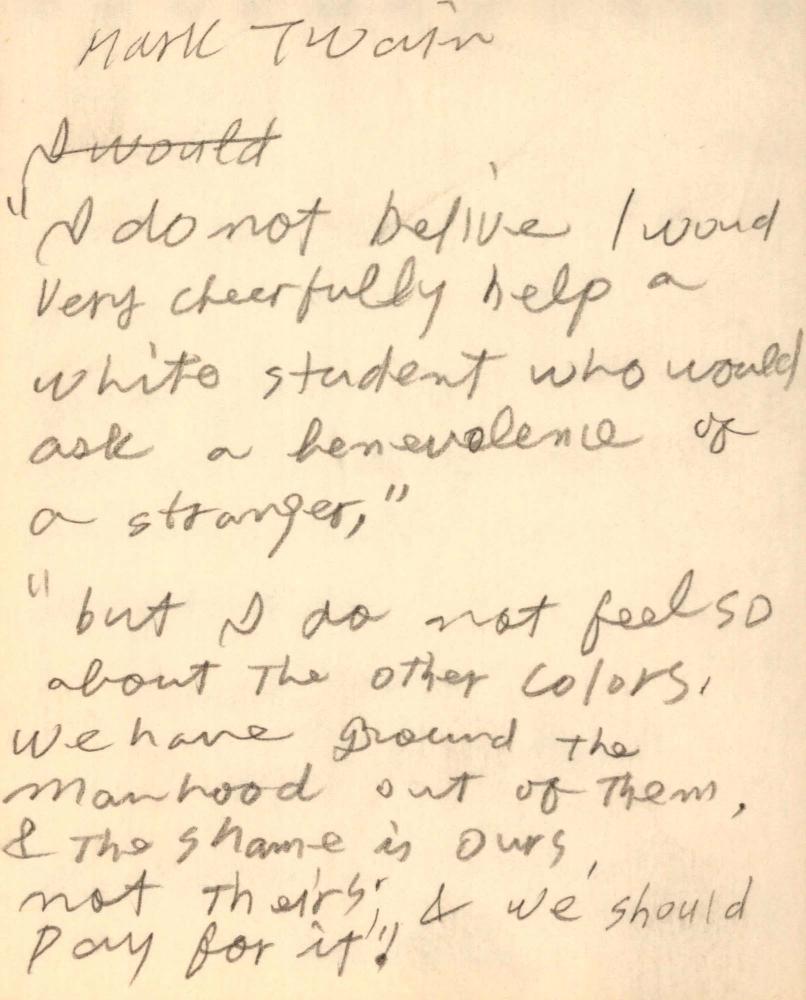 Mark Twain
I would
"I do not belive I woud
very cheerfully help a
white student who would
ask a benevolence of
a stranger,"
"but I do not feel so
about The other colors,
We have ground the
manhood out of Them,
& The shame is ours,
not Theirs; & we should
Pay for it"!